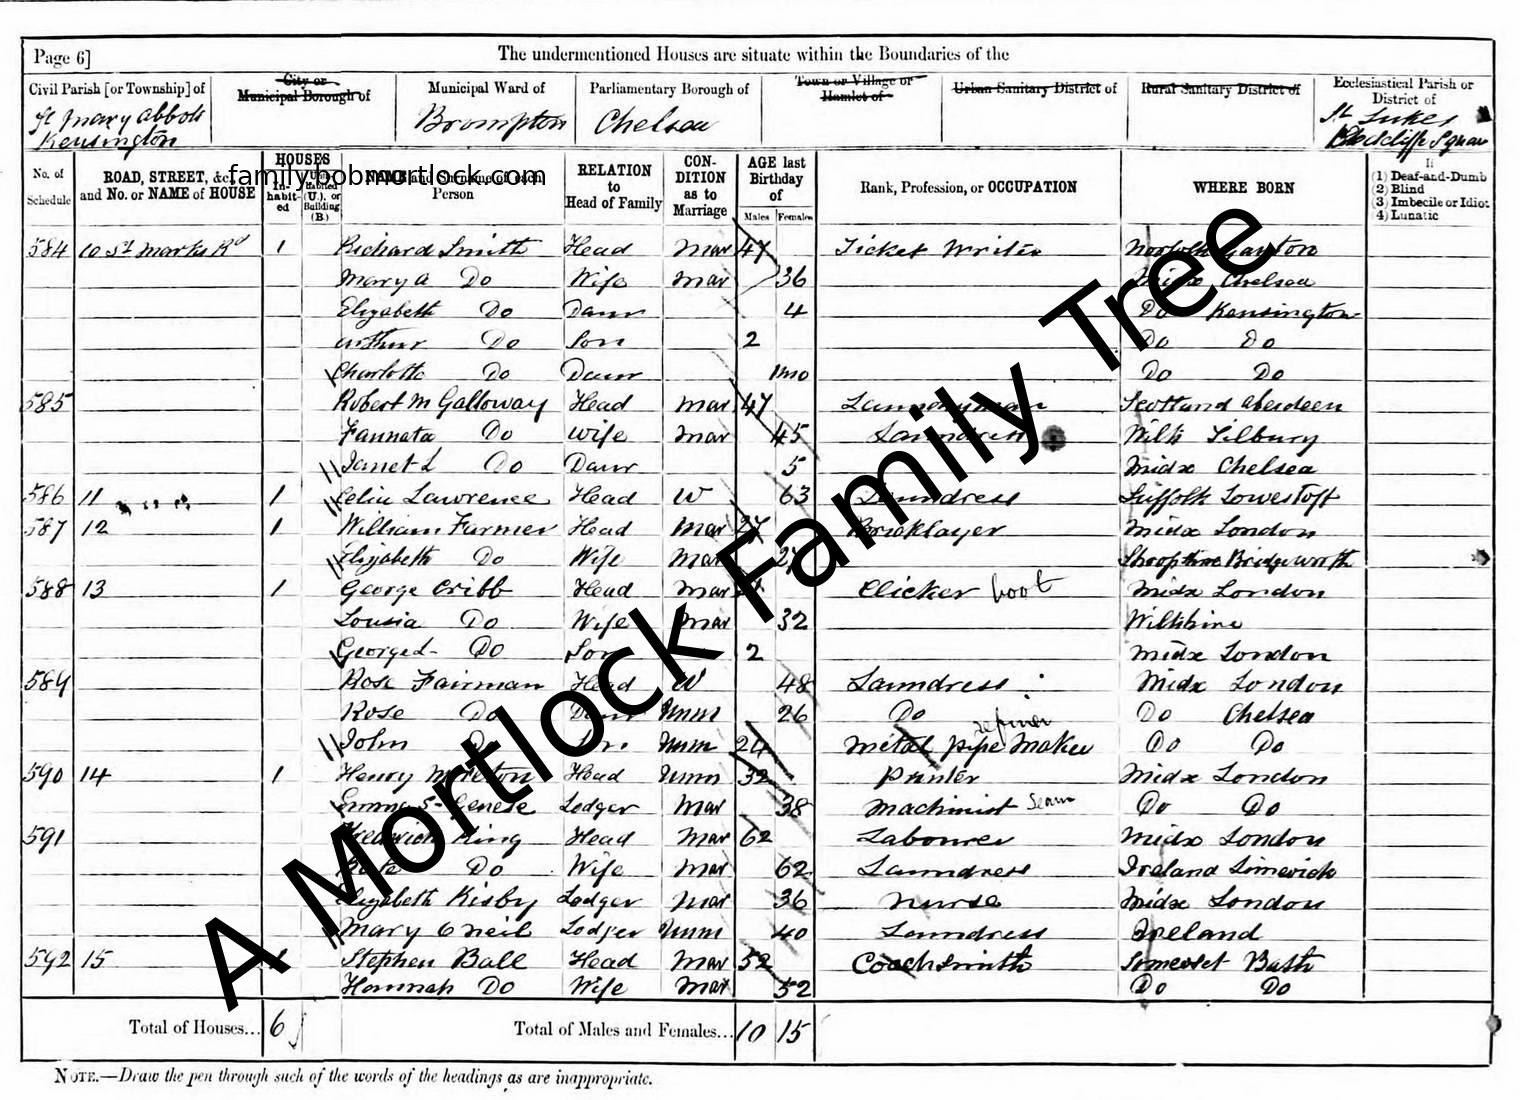 Page 6]
The undermentioned Houses are situate within the Boundaries of the
Civil Parish [or Township] of
City or Municipal Borough of
Municipal Ward of
Parliamentary Borough of
Town or Village or Hamlet of
Urban Sanitary District of
Rural Sanitary District of
Ecclesiastical Parish or District of
St Mary Abbots Kensington
Brompton
Chelsea
St Lukes Square
familybobmortlock.com
No. of Schedule
ROAD, STREET, &c. and No. or NAME of HOUSE
HOUSES
In-habit-ed
(U.), or Building (B.)
NAME and Surname of each Person
RELATION to Head of Family
CON-DITION as to Marriage
AGE last Birthday of
Males Females
Rank, Profession, or OCCUPATION
WHERE BORN
If
(1) Deaf-and-Dumb
(2) Blind
(3) Imbecile or Idiot
(4) Lunatic
584 10 St Marks Rd 1 Richard Smith Head Mar 47 Ticket Writer Norfolk
Mary A Do Wife Mar 36 Midx Chelsea
Elizabeth Do Daur 4 Do Kensington
Arthur Do Son 2 Do Do
Charlotte Do Daur 1mo Do Do
585 Robert M Galloway Head Mar 47 Laundryman Scotland Aberdeen
Do Wife Mar 45 Laundress Wilts Tilbury
Janet L Do Daur 5 Midx Chelsea
586 11 1 Celia Lawrence Head W 63 Laundress Suffolk Lowestoft
587 12 1 William Farmer Head Mar 27 Bricklayer Midx London
Elizabeth Do Wife Mar 27
588 13 1 George Cribb Head Mar Clicker boot Midx London
Lousia Do Wife Mar 32 Wiltshire
George L Do Son 2 Midx London
589 Rose Fairman Head W 48 Laundress Midx London
Rose Do Daur Unm 26 Do Do Chelsea
John Do Son Unm 24 Metal pipe Maker refiner Do Do
590 14 1 Henry Head Unm 32 Printer Midx London
Emma S Lodger Mar 38 Machinist Do Do
591 King Head Mar 62 Labourer Midx London
Kate Do Wife Mar 62 Laundress Ireland Limerick
Elizabeth Kisby Lodger Mar 36 Nurse Midx London
Mary Oneil Lodger Unm 40 Laundress Ireland
592 15 1 Stephen Ball Head Mar 52 Coachsmith Somerset Bath
Hannah Do Wife Mar 52 Do Do
Total of Houses... 6
Total of Males and Females... 10 15
NOTE.—Draw the pen through such of the words of the headings as are inappropriate.
A Mortlock Family Tree